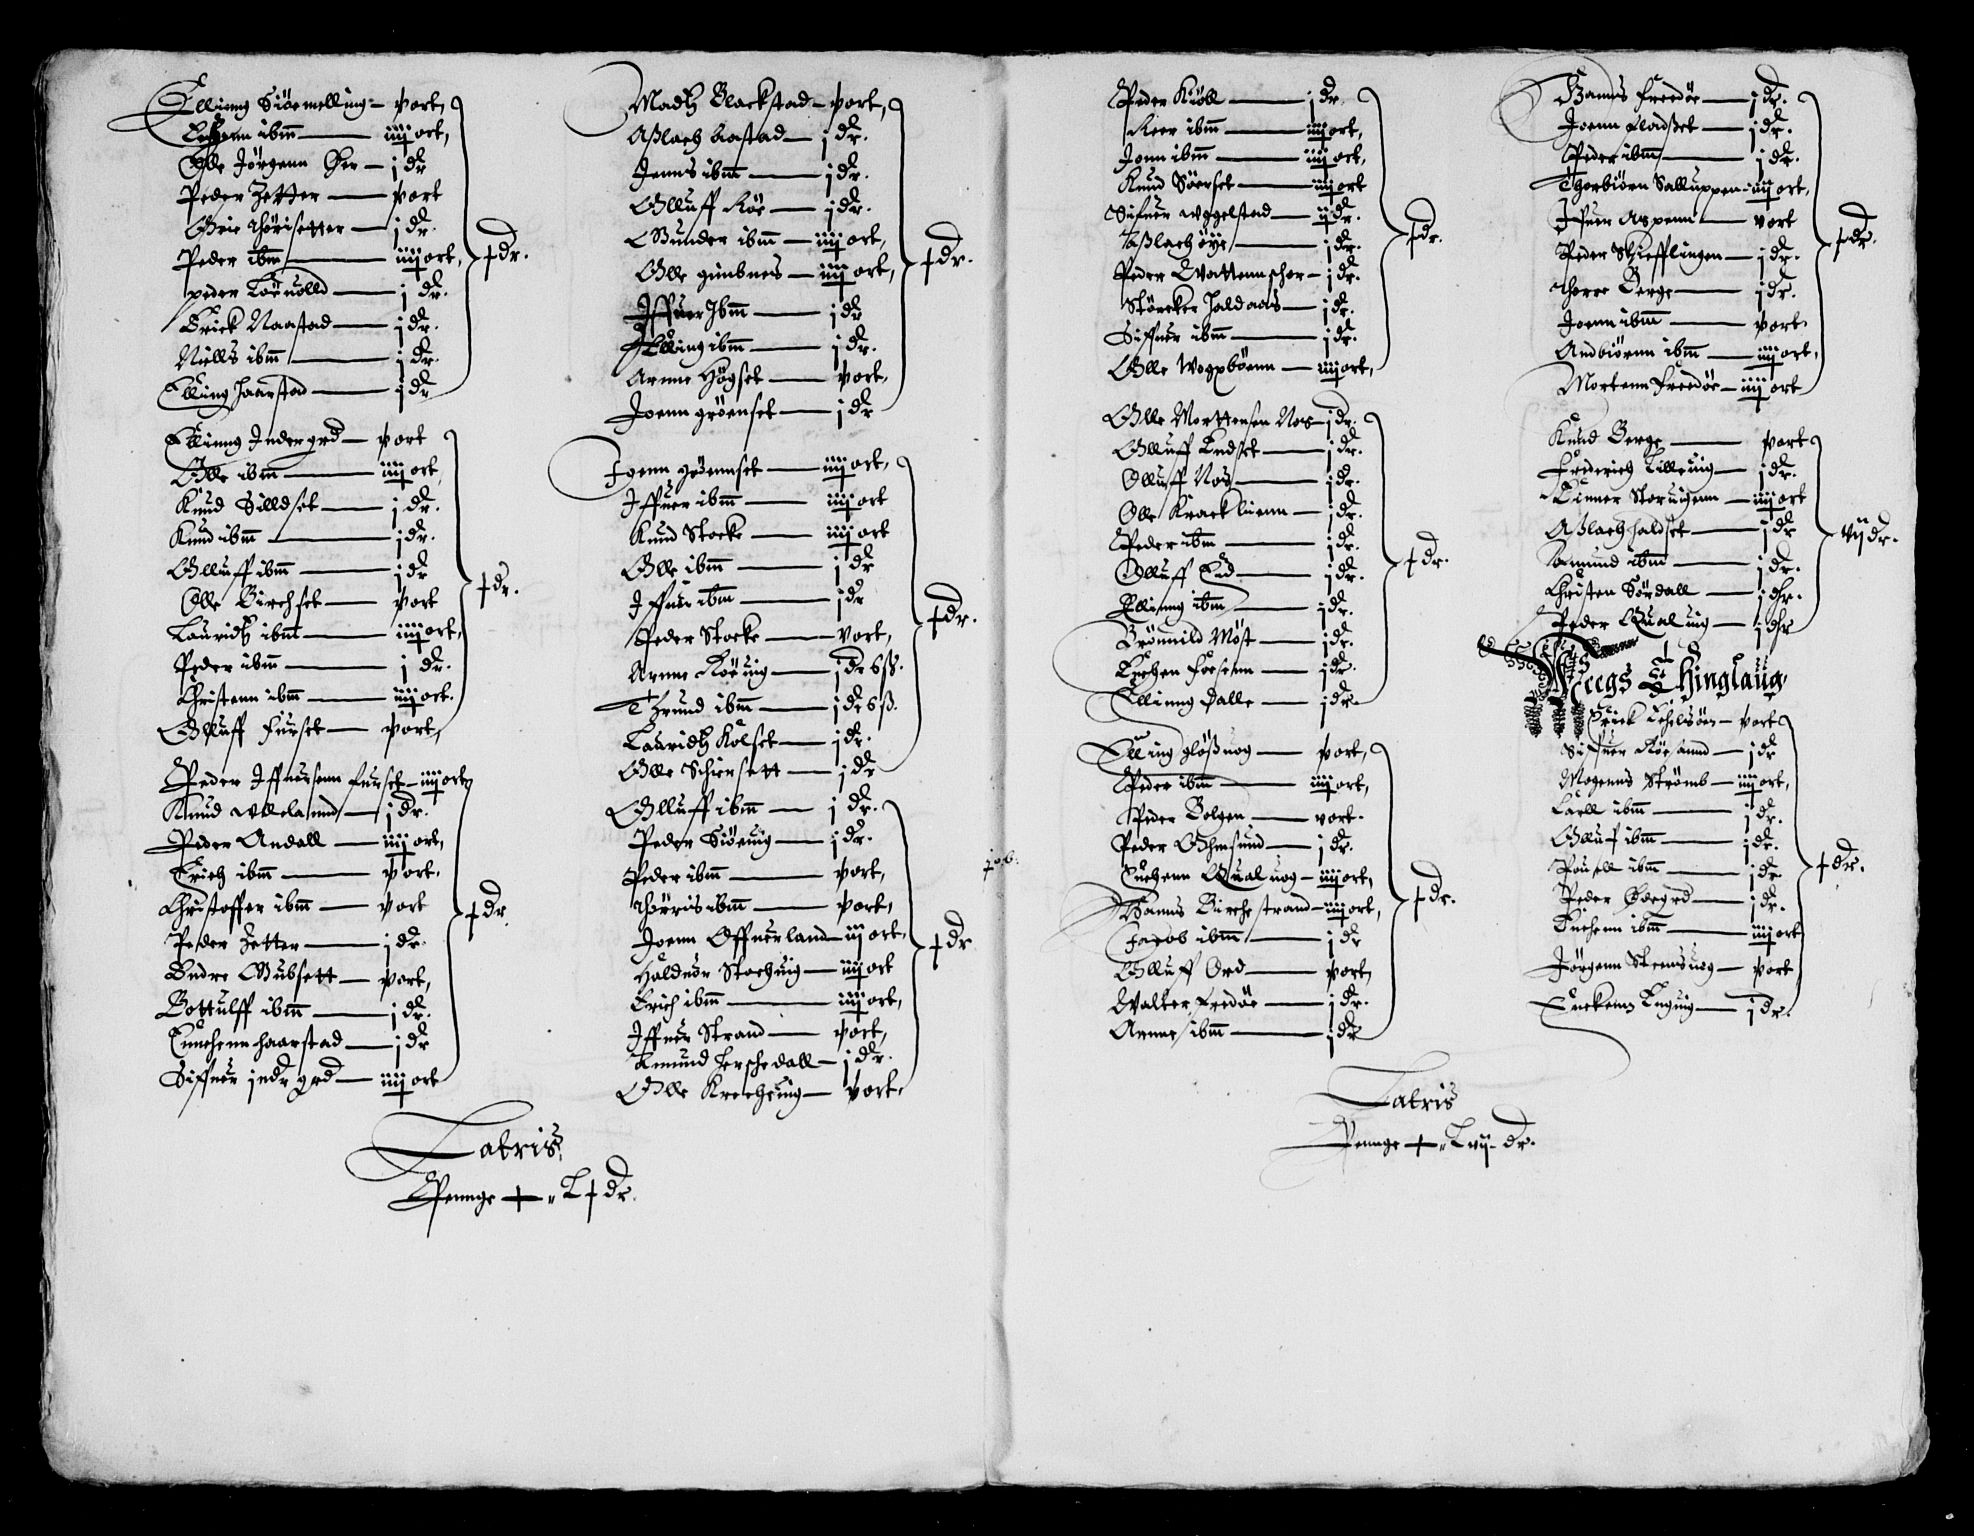 Ellinng Siöemelling – v ort,
ibm — iiij ort,
Olle Jörgenn Ger – j dr
Peder Zetter — v ort
Gric Thörisetter — j dr.
Peder ibm — iiij ort,
peder — j dr.
Erick Naastad — j dr.
Niells ibm — j dr.
Elling Haarstad — j dr
x dr.
Ellinng Indergrd — v ort
Olle ibm — iiij ort,
Knud Silldset — j dr.
Knud ibm — j dr.
Olluff ibm — j dr
Olle Birchset — v ort
Lauridtz ibm — iiij ort,
Peder ibm — j dr.
Christenn ibm — iiij ort.
Olluff Furset — v ort,
x dr.
Peder Iffuersenn Furset – iiij ort
Knud Vlleland — j dr.
Peder Andall — iiij ort,
Erich ibm — v ort.
Christoffer ibm — v ort
Peder Zetter — j dr.
Endre Gubsett — v ort,
Bottulff ibm — j dr.
Euuchenn Haarstad — j dr
Siffuer jndr grd — iiij ort
x dr.
Latris
Pennge + „ Lx dr.
Madtz Blackstad – v ort,
Aslach Aastad — j dr.
Jenns ibm — j dr.
Olluff Röe — j dr.
Gunder ibm — iiij ort,
Olle gimbnes – iiij ort,
Iffuer Ibm — j dr
Elling ibm — j dr.
Arnne Högset — v ort.
Joenn gröenset — j dr
x dr.
Joenn grönnset — iiij ort,
Iffuer ibm — iiij ort
Knud Stocke — iiij ort
Olle ibm — j dr
Iffuer ibm — j dr
Peder Stocke — v ort,
Arnne Röeuig — j dr 8 ß.
Trund ibm — j dr 8 ß.
Lauridtz Kolset — j dr.
Olle Schiersett — j dr
x dr.
Olluff ibm — j dr.
Peder Siöeuig — j dr.
Peder ibm — v ort,
Thörris ibm — v ort,
Joenn Offuerland — iij ort,
Halduor Stochuig — iiij ort
Erich ibm — iiij ort,
Iffuer Strand — v ort,
Amund Herschedall – j dr.
Olle Krocheuig — v ort.
x dr
Peder Kiöll — j dr.
Reer ibm — iiij ort,
Jonn ibm — iiij ort,
Knud Söerset — iiij ort
Sifuer Vggelstad — ij dr.
Aslach öye — j dr.
Peder Vattennschor — j dr.
Störcker Haldaas — j dr.
Siffuer ibm — j dr.
Olle Wogxböenn — iiij ort,
x dr.
Olle Morttensen Nos – j dr.
Olluff Endset — j dr.
Olluff Nos — j dr.
Olle Kracklienn — j dr.
Peder ibm — j dr.
Olluff Eid — j dr.
Ellinng ibm — j dr.
Brönnild Möst — j dr.
Euchen Foesenn — j dr.
Ellinng Dalle — j dr.
x dr.
Elling glösuog — v ort,
Peder ibm — iiij ort,
Peder Bolgen — v ort.
Peder Ohmsund — j dr.
Euchenn Qualuog — iiij ort,
Hanns Birchestrand – iiij ort,
Jacob ibm — j dr
Olluff Ord — v ort,
Walter Fredöe — j dr.
Arnne ibm — j dr
x dr.
Latris
Pennge + „ Lvij dr.
Hanns Freedöe — j dr.
Joenn Fladset — j dr.
Peder ibm — j dr.
Thorbiörn Salluppen – iiij ort,
Ifuer Aspenn — v ort
Peder Skiefflingen — j dr.
Thorre Berge — j dr.
Joenn ibm — v ort
Andbiörnn ibm — iiij ort,
Mortenn Freedöe – iiij ort
x dr.
Knud Berge — v ort
Friderich Tilleuig — j dr.
Einner Storuigenn — iiij ort
Aslach Haldset — j dr
Amund ibm — j dr.
Christen Sördall — j dhr.
Peder Qualuig — j dhr
vij dr.
Meegs Thinglaug,
Erick — v ort
Sifuer Röesannd — j dr
Mogenns Strömb — iiij ort,
Laell ibm — j dr.
Olluf ibm — j dr.
Pouell ibm — j dr
Peder Ödegrd — j dr.
Euchenn ibm — iiij ort
Jörgenn Steensuog — v ort
Euckenn Enguig — j dr.
x dr.